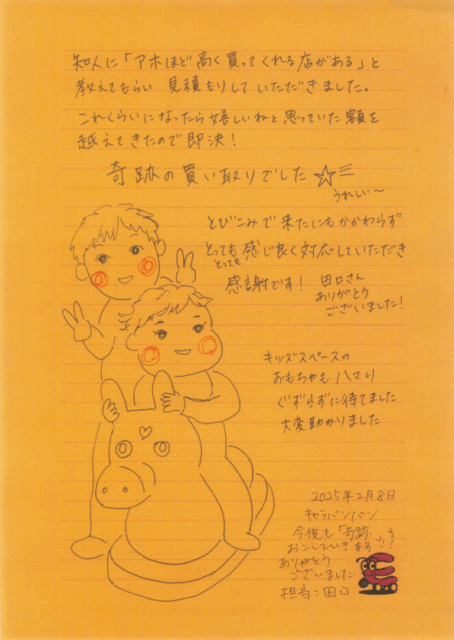 知人に「アホほど高く買ってくれる店がある」と
教えてもらい 見積もりしていただきました。
これくらいになったら嬉しいねと思っていた額を
越えてきたので即決！
奇跡の買い取りでした☆
うれしい〜
とびこみで来たにもかかわらず
とっても感じ良く対応していただき
とっても
感謝です！ 田口さん
ありがとう
ございました！
キッズスペースの
おもちゃも ハマり
ぐずらずに待てました
大変助かりました
2025年2月8日
キャラバンバン
今後も「奇跡」
おこしていきます
ありがとう
ございました
担当：田口